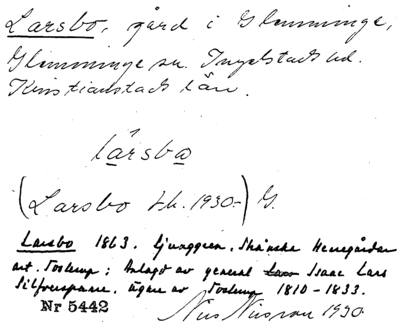 Larsbo, gård i Glemminge,
Glemminge sn. Ingelstads hd.
Kristianstads län.
lársbo
(Larsbo Jb. 1930-) G.
Larsbo 1863. Ljunggren. Skånska Herregårdar
art. Tosterup: Anlagt av general Isaac Lars
Silfversparre, ägare av Tosterup 1810-1833.
Nr 5442 Nils Nilsson 1930